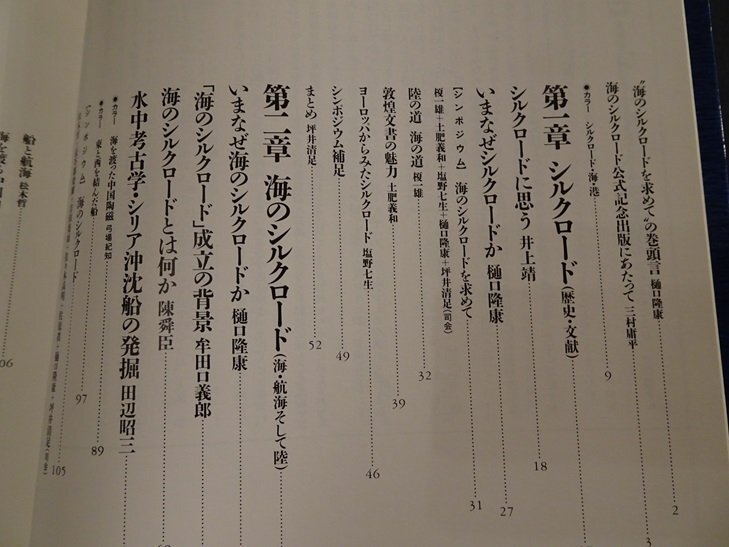 “海のシルクロードを求めて”の巻頭言 樋口隆康 2
海のシルクロード公式記念出版にあたって 三村庸平 3
●カラー シルクロード・海・港 9
第一章 シルクロード(歴史・文献)
シルクロードに思う 井上靖 18
いまなぜシルクロードか 樋口隆康 27
[シンポジウム] 海のシルクロードを求めて 31
榎一雄+土肥義和+塩野七生+樋口隆康+坪井清足(司会)
陸の道 海の道 榎一雄 32
敦煌文書の魅力 土肥義和 39
ヨーロッパからみたシルクロード 塩野七生 46
シンポジウム補足 49
まとめ 坪井清足 52
第二章 海のシルクロード(海・航海そして陸)
いまなぜ海のシルクロードか 樋口隆康
「海のシルクロード」成立の背景 牟田口義郎
海のシルクロードとは何か 陳舜臣
水中考古学・シリア沖沈船の発掘 田辺昭三
●カラー 海を渡った中国陶磁 弓場紀知 89
●カラー 東と西を結んだ船 97
[シンポジウム] 海のシルクロード 105
船と航海 松木哲 106